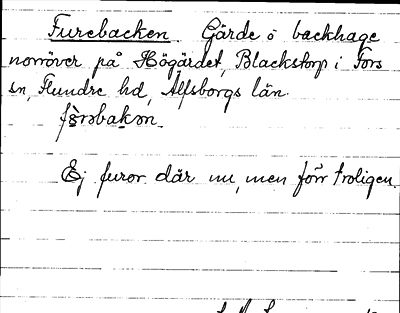 Furebacken. Gärde o backhage
norröver på Högärdet, Blackstorp i Fors
sn, Flundre hd, Älfsborgs län.
Ej furor där nu, men förr troligen.